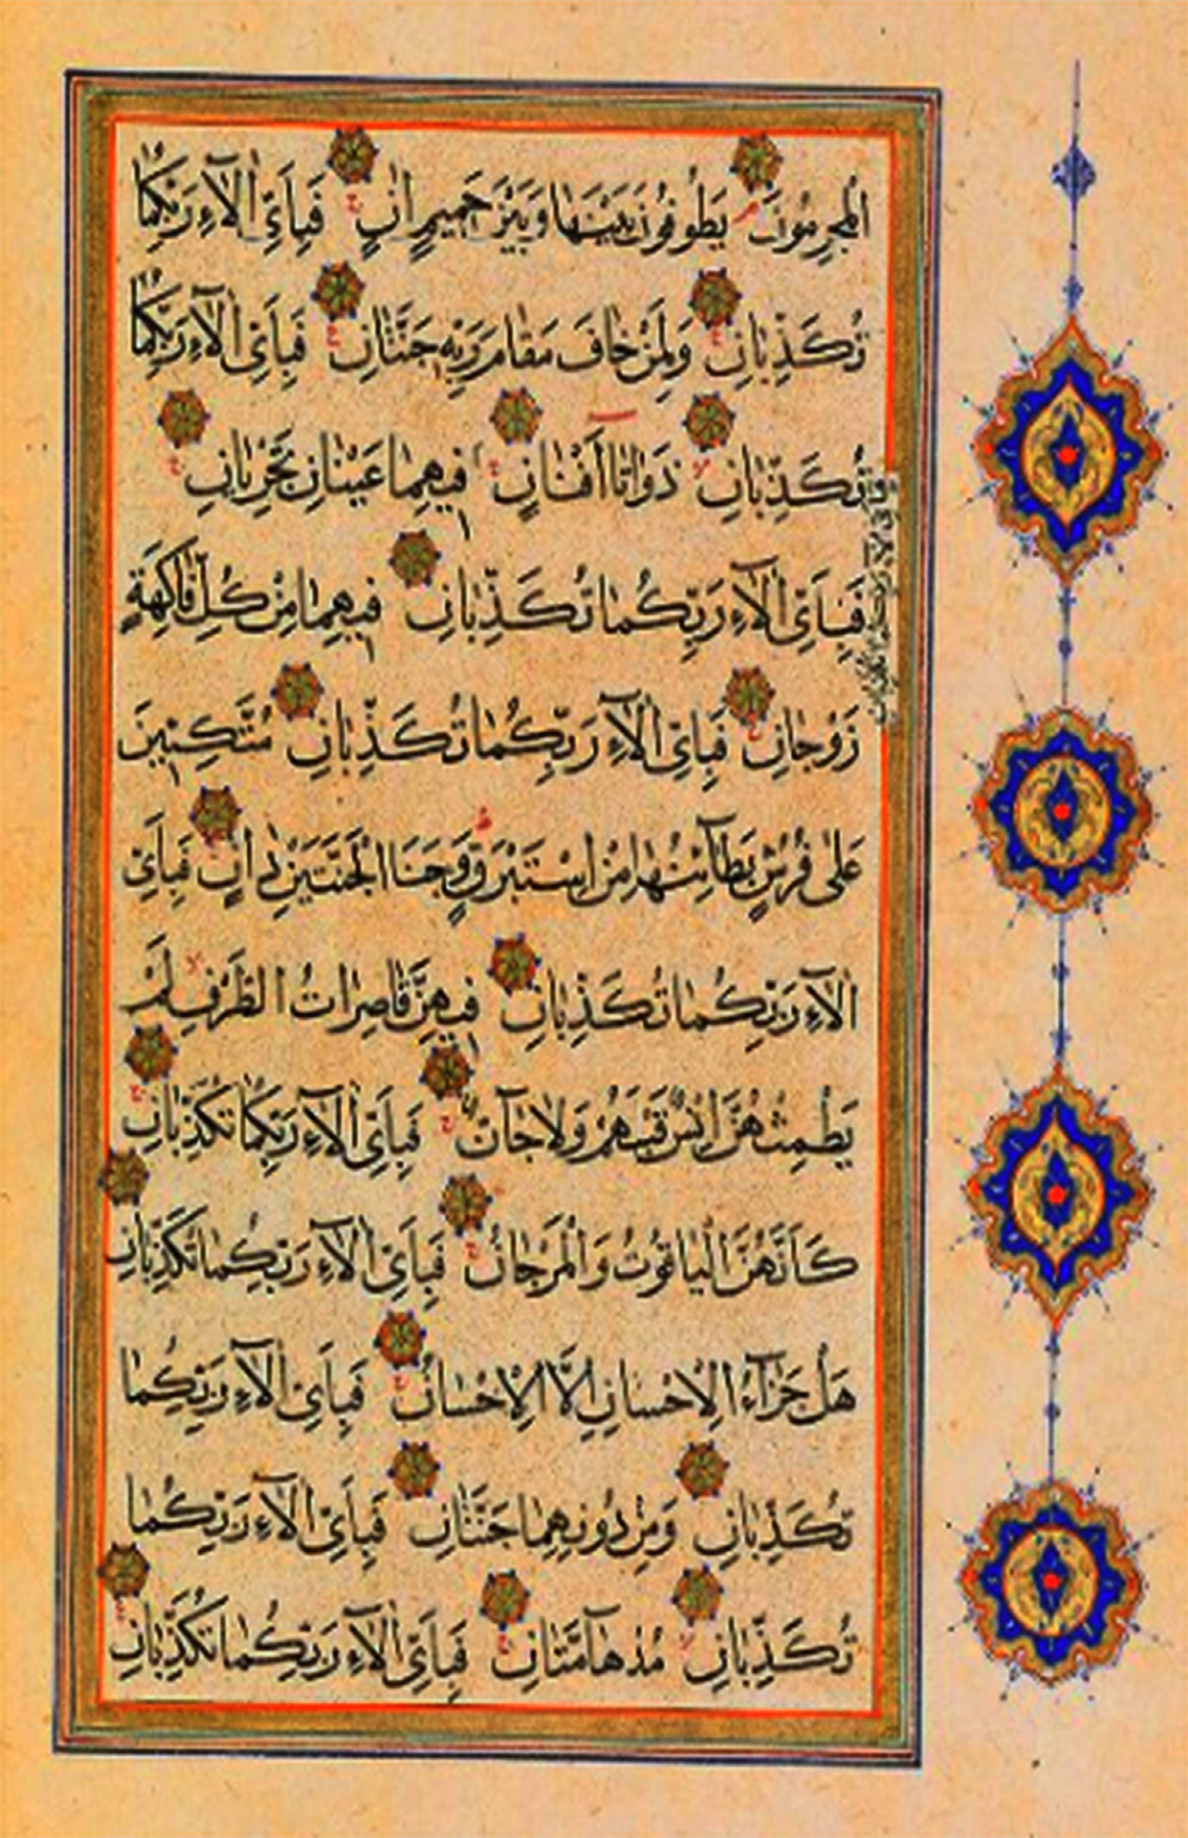 الْمُجْرِمُونَ يَطُوفُونَ بَيْنَهَا وَبَيْنَ حَمِيمٍ اٰنٍ فَبِاَيِّ اٰلَآءِ رَبِّكُمَا
تُكَذِّبَانِ وَلِمَنْ خَافَ مَقَامَ رَبِّهٖ جَنَّتَانِ فَبِاَيِّ اٰلَآءِ رَبِّكُمَا
تُكَذِّبَانِ ذَوَاتَا اَفْنَانٍ فِيهِمَا عَيْنَانِ تَجْرِيَانِ
فباي الاء ربكما تكذبان
فَبِاَيِّ اٰلَآءِ رَبِّكُمَا تُكَذِّبَانِ فِيهِمَا مِنْ كُلِّ فَاكِهَةٍ
زَوْجَانِ فَبِاَيِّ اٰلَآءِ رَبِّكُمَا تُكَذِّبَانِ مُتَّكِئِينَ
عَلٰى فُرُشٍ بَطَآئِنُهَا مِنْ اِسْتَبْرَقٍ وَجَنَا الْجَنَّتَيْنِ دَانٍ فَبِاَيِّ
اٰلَآءِ رَبِّكُمَا تُكَذِّبَانِ فِيهِنَّ قَاصِرَاتُ الطَّرْفِ لَمْ
يَطْمِثْهُنَّ اِنْسٌ قَبْلَهُمْ وَلَا جَآنٌّ فَبِاَيِّ اٰلَآءِ رَبِّكُمَا تُكَذِّبَانِ
كَاَنَّهُنَّ الْيَاقُوتُ وَالْمَرْجَانُ فَبِاَيِّ اٰلَآءِ رَبِّكُمَا تُكَذِّبَانِ
هَلْ جَزَآءُ الْاِحْسَانِ اِلَّا الْاِحْسَانُ فَبِاَيِّ اٰلَآءِ رَبِّكُمَا
تُكَذِّبَانِ وَمِنْ دُونِهِمَا جَنَّتَانِ فَبِاَيِّ اٰلَآءِ رَبِّكُمَا
تُكَذِّبَانِ مُدْهَآمَّتَانِ فَبِاَيِّ اٰلَآءِ رَبِّكُمَا تُكَذِّبَانِ